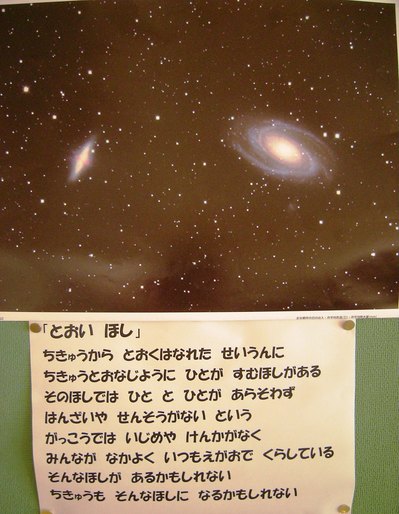 「とおい ほし」
ちきゅうから とおくはなれた せいうんに
ちきゅうとおなじように ひとが すむほしがある
そのほしでは ひと と ひとが あらそわず
はんざいや せんそうがない という
がっこうでは いじめや けんかがなく
みんなが なかよく いつもえがおで くらしている
そんなほしが あるかもしれない
ちきゅうも そんなほしに なるかもしれない